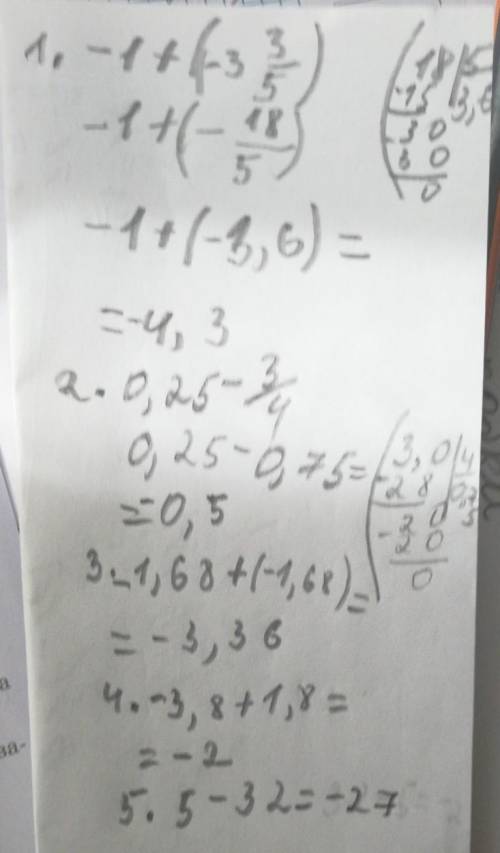 1. -1+(-3 3/5)
-1+(-18/5)
-1+(-3,6)=
=-4,3
2. 0,25-3/4
0,25-0,75=
=-0,5
3. -1,68+(-1,68)=
=-3,36
4. -3,8+1,8=
=-2
5. 5-32=-27
18|5
-15 3,6
-30
30
0
3,0|4
-28 0,75
-20
20
0